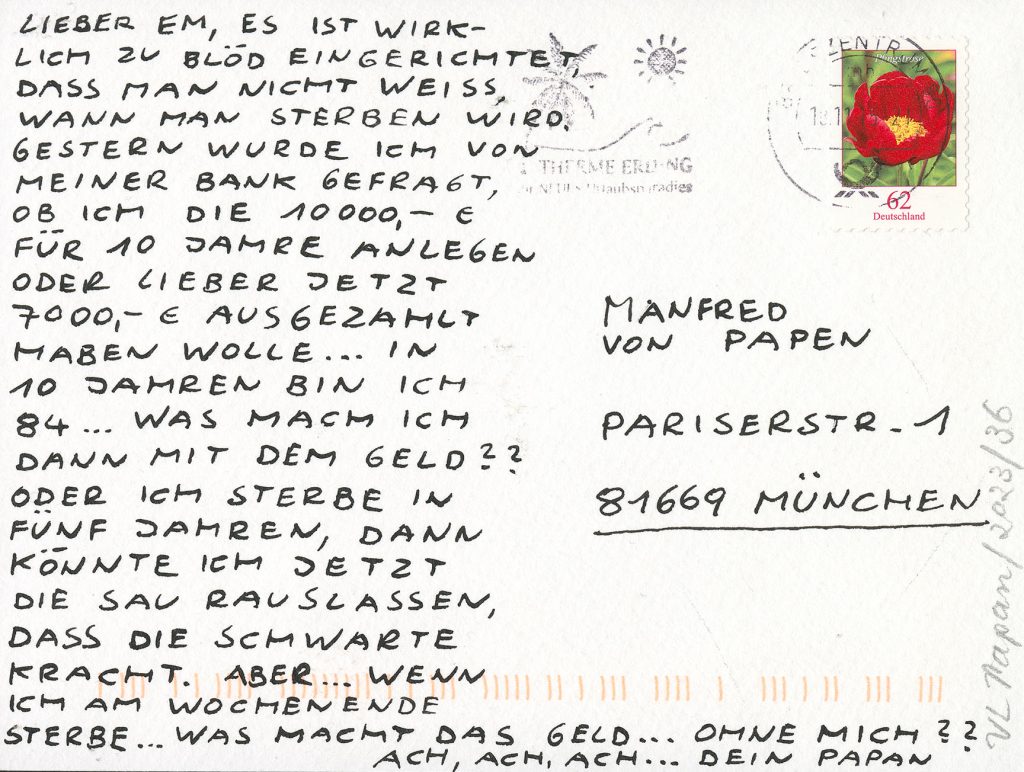 LIEBER EM, ES IST WIRK-
LICH ZU BLÖD EINGERICHTET,
DASS MAN NICHT WEISS,
WANN MAN STERBEN WIRD.
GESTERN WURDE ICH VON
MEINER BANK GEFRAGT,
OB ICH DIE 10000,- €
FÜR 10 JAHRE ANLEGEN
ODER LIEBER JETZT
7000,- € AUSGEZAHLT
HABEN WOLLE... IN
10 JAHREN BIN ICH
84... WAS MACH ICH
DANN MIT DEM GELD??
ODER ICH STERBE IN
FÜNF JAHREN, DANN
KÖNNTE ICH JETZT
DIE SAU RAUSLASSEN,
DASS DIE SCHWARTE
KRACHT. ABER... WENN
ICH AM WOCHENENDE
STERBE... WAS MACHT DAS GELD... OHNE MICH??
ACH, ACH, ACH... DEIN PAPAN
THERME ERDING
Urlaubsparadies
BRIEFZENTRUM
Pfingstrose
62
Deutschland
MANFRED
VON PAPEN
PARISERSTR. 1
81669 MÜNCHEN
VL Papan/2023/36